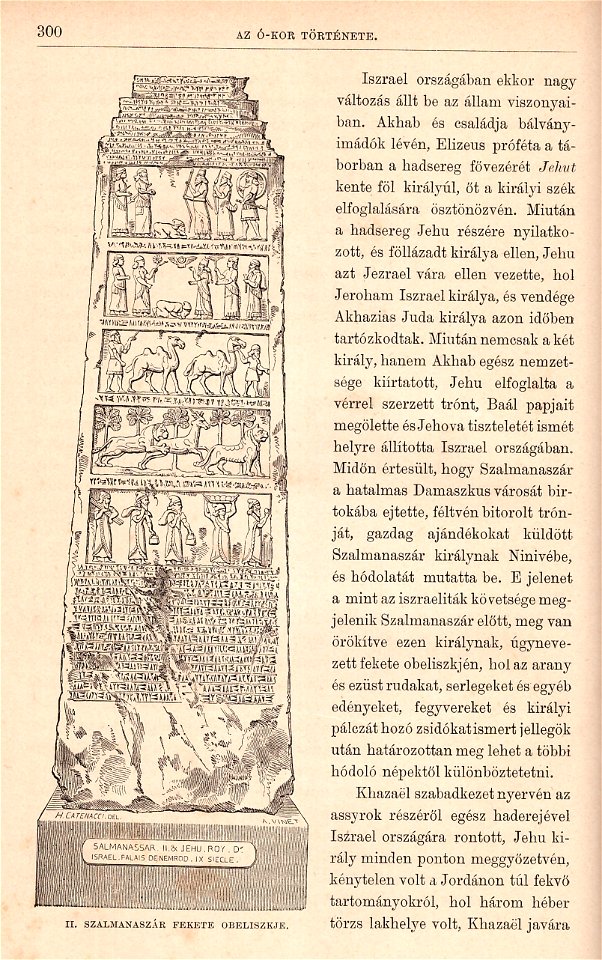 300
AZ Ó-KOR TÖRTÉNETE.
H. CATENACCI. DEL.
A. VINET
SALMANASSAR. II. & JEHU. ROY. D'
ISRAEL. PALAIS DENEMROD. IX SIECLE.
II. SZALMANASZÁR FEKETE OBELISZKJE.
Iszrael országában ekkor nagy
változás állt be az állam viszonyai-
ban. Akhab és családja bálvány-
imádók lévén, Elizeus próféta a tá-
borban a hadsereg fővezérét Jehut
kente föl királyúl, őt a királyi szék
elfoglalására ösztönözvén. Miután
a hadsereg Jehu részére nyilatko-
zott, és föllázadt királya ellen, Jehu
azt Jezrael vára ellen vezette, hol
Jeroham Iszrael királya, és vendége
Akhazias Juda királya azon időben
tartózkodtak. Miután nemcsak a két
király, hanem Akhab egész nemzet-
sége kiírtatott, Jehu elfoglalta a
vérrel szerzett trónt, Baál papjait
megölette és Jehova tiszteletét ismét
helyre állította Iszrael országában.
Midőn értesült, hogy Szalmanaszár
a hatalmas Damaszkus városát bir-
tokába ejtette, féltvén bitorolt trón-
ját, gazdag ajándékokat küldött
Szalmanaszár királynak Ninivébe,
és hódolatát mutatta be. E jelenet
a mint az iszraeliták követsége meg-
jelenik Szalmanaszár előtt, meg van
örökítve ezen királynak, úgyneve-
zett fekete obeliszkjén, hol az arany
és ezüst rudakat, serlegeket és egyéb
edényeket, fegyvereket és királyi
pálczát hozó zsidókat ismert jellegök
után határozottan meg lehet a többi
hódoló népektől különböztetetni.
Khazaël szabadkezet nyervén az
assyrok részéről egész haderejével
Iszrael országára rontott, Jehu ki-
rály minden ponton meggyőzetvén,
kénytelen volt a Jordánon túl fekvő
tartományokról, hol három héber
törzs lakhelye volt, Khazaël javára